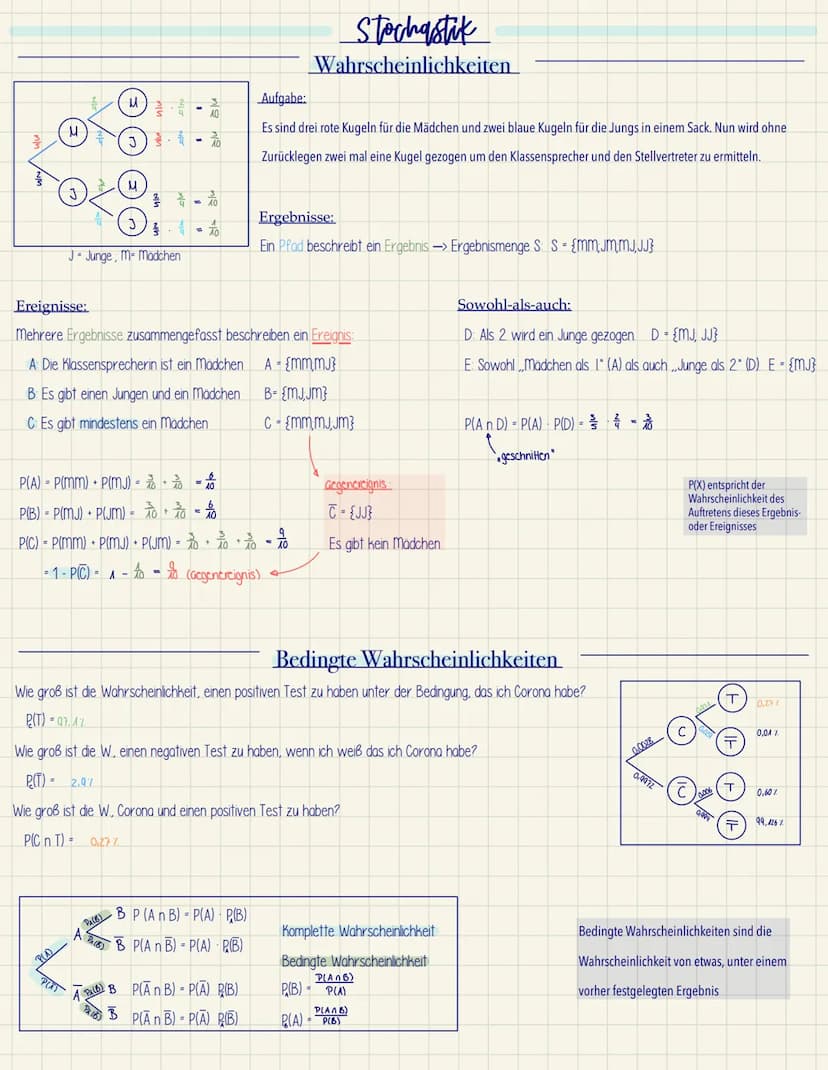 Stochastik
Wahrscheinlichkeiten
3/5 M 2/4 M 3/5 · 2/4 = 3/10
2/4 J 3/5 · 2/4 = 3/10
2/5 J 3/4 M 2/5 · 3/4 = 3/10
1/4 J 2/5 · 1/4 = 1/10
J = Junge, M= Mädchen
Aufgabe:
Es sind drei rote Kugeln für die Mädchen und zwei blaue Kugeln für die Jungs in einem Sack. Nun wird ohne
Zurücklegen zwei mal eine Kugel gezogen um den Klassensprecher und den Stellvertreter zu ermitteln.
Ergebnisse:
Ein Pfad beschreibt ein Ergebnis → Ergebnismenge S: S = {MM,JM,MJ,JJ}
Ereignisse:
Mehrere Ergebnisse zusammengefasst beschreiben ein Ereignis:
A: Die Klassensprecherin ist ein Mädchen A = {MM,MJ}
B: Es gibt einen Jungen und ein Mädchen B= {MJ,JM}
C: Es gibt mindestens ein Mädchen C = {MM,MJ,JM}
Sowohl-als-auch:
D: Als 2. wird ein Junge gezogen D = {MJ, JJ}
E: Sowohl „Mädchen als 1." (A) als auch „Junge als 2." (D) E = {MJ}
P(A ∩ D) = P(A) · P(D) = 3/5 · 2/4 = 3/10
„geschnitten"
P(A) = P(MM) + P(MJ) = 3/10 + 3/10 = 6/10
P(B) = P(MJ) + P(JM) = 3/10 + 3/10 = 6/10
P(C) = P(MM) + P(MJ) + P(JM) = 3/10 + 3/10 + 3/10 = 9/10
= 1 - P(C̅) = 1 - 1/10 = 9/10 (Gegenereignis)
Gegenereignis:
C̅ = {JJ}
Es gibt kein Mädchen
P(X) entspricht der
Wahrscheinlichkeit des
Auftretens dieses Ergebnis-
oder Ereignisses
Bedingte Wahrscheinlichkeiten
Wie groß ist die Wahrscheinlichkeit, einen positiven Test zu haben unter der Bedingung, das ich Corona habe?
P_C(T) = 97,1%
Wie groß ist die W., einen negativen Test zu haben, wenn ich weiß das ich Corona habe?
P_C(T̅) = 2,9%
Wie groß ist die W., Corona und einen positiven Test zu haben?
P(C ∩ T) = 0,27%
0,0028 C T 0,27%
T̅ 0,01%
0,9972 C̅ 0,006 T 0,60%
0,994 T̅
P(A) A P_A(B) B P(A ∩ B) = P(A) · P_A(B)
P_A(B̅) B̅ P(A ∩ B̅) = P(A) · P_A(B̅)
P(A̅) A̅ P_A̅(B) B P(A̅ ∩ B) = P(A̅) P_A̅(B)
P_A̅(B̅) B̅ P(A̅ ∩ B̅) = P(A̅) P_A̅(B̅)
Komplette Wahrscheinlichkeit
Bedingte Wahrscheinlichkeit
P_A(B) = P(A∩B)/P(A)
P_B(A) = P(A∩B)/P(B)
Bedingte Wahrscheinlichkeiten sind die
Wahrscheinlichkeit von etwas, unter einem
vorher festgelegten Ergebnis